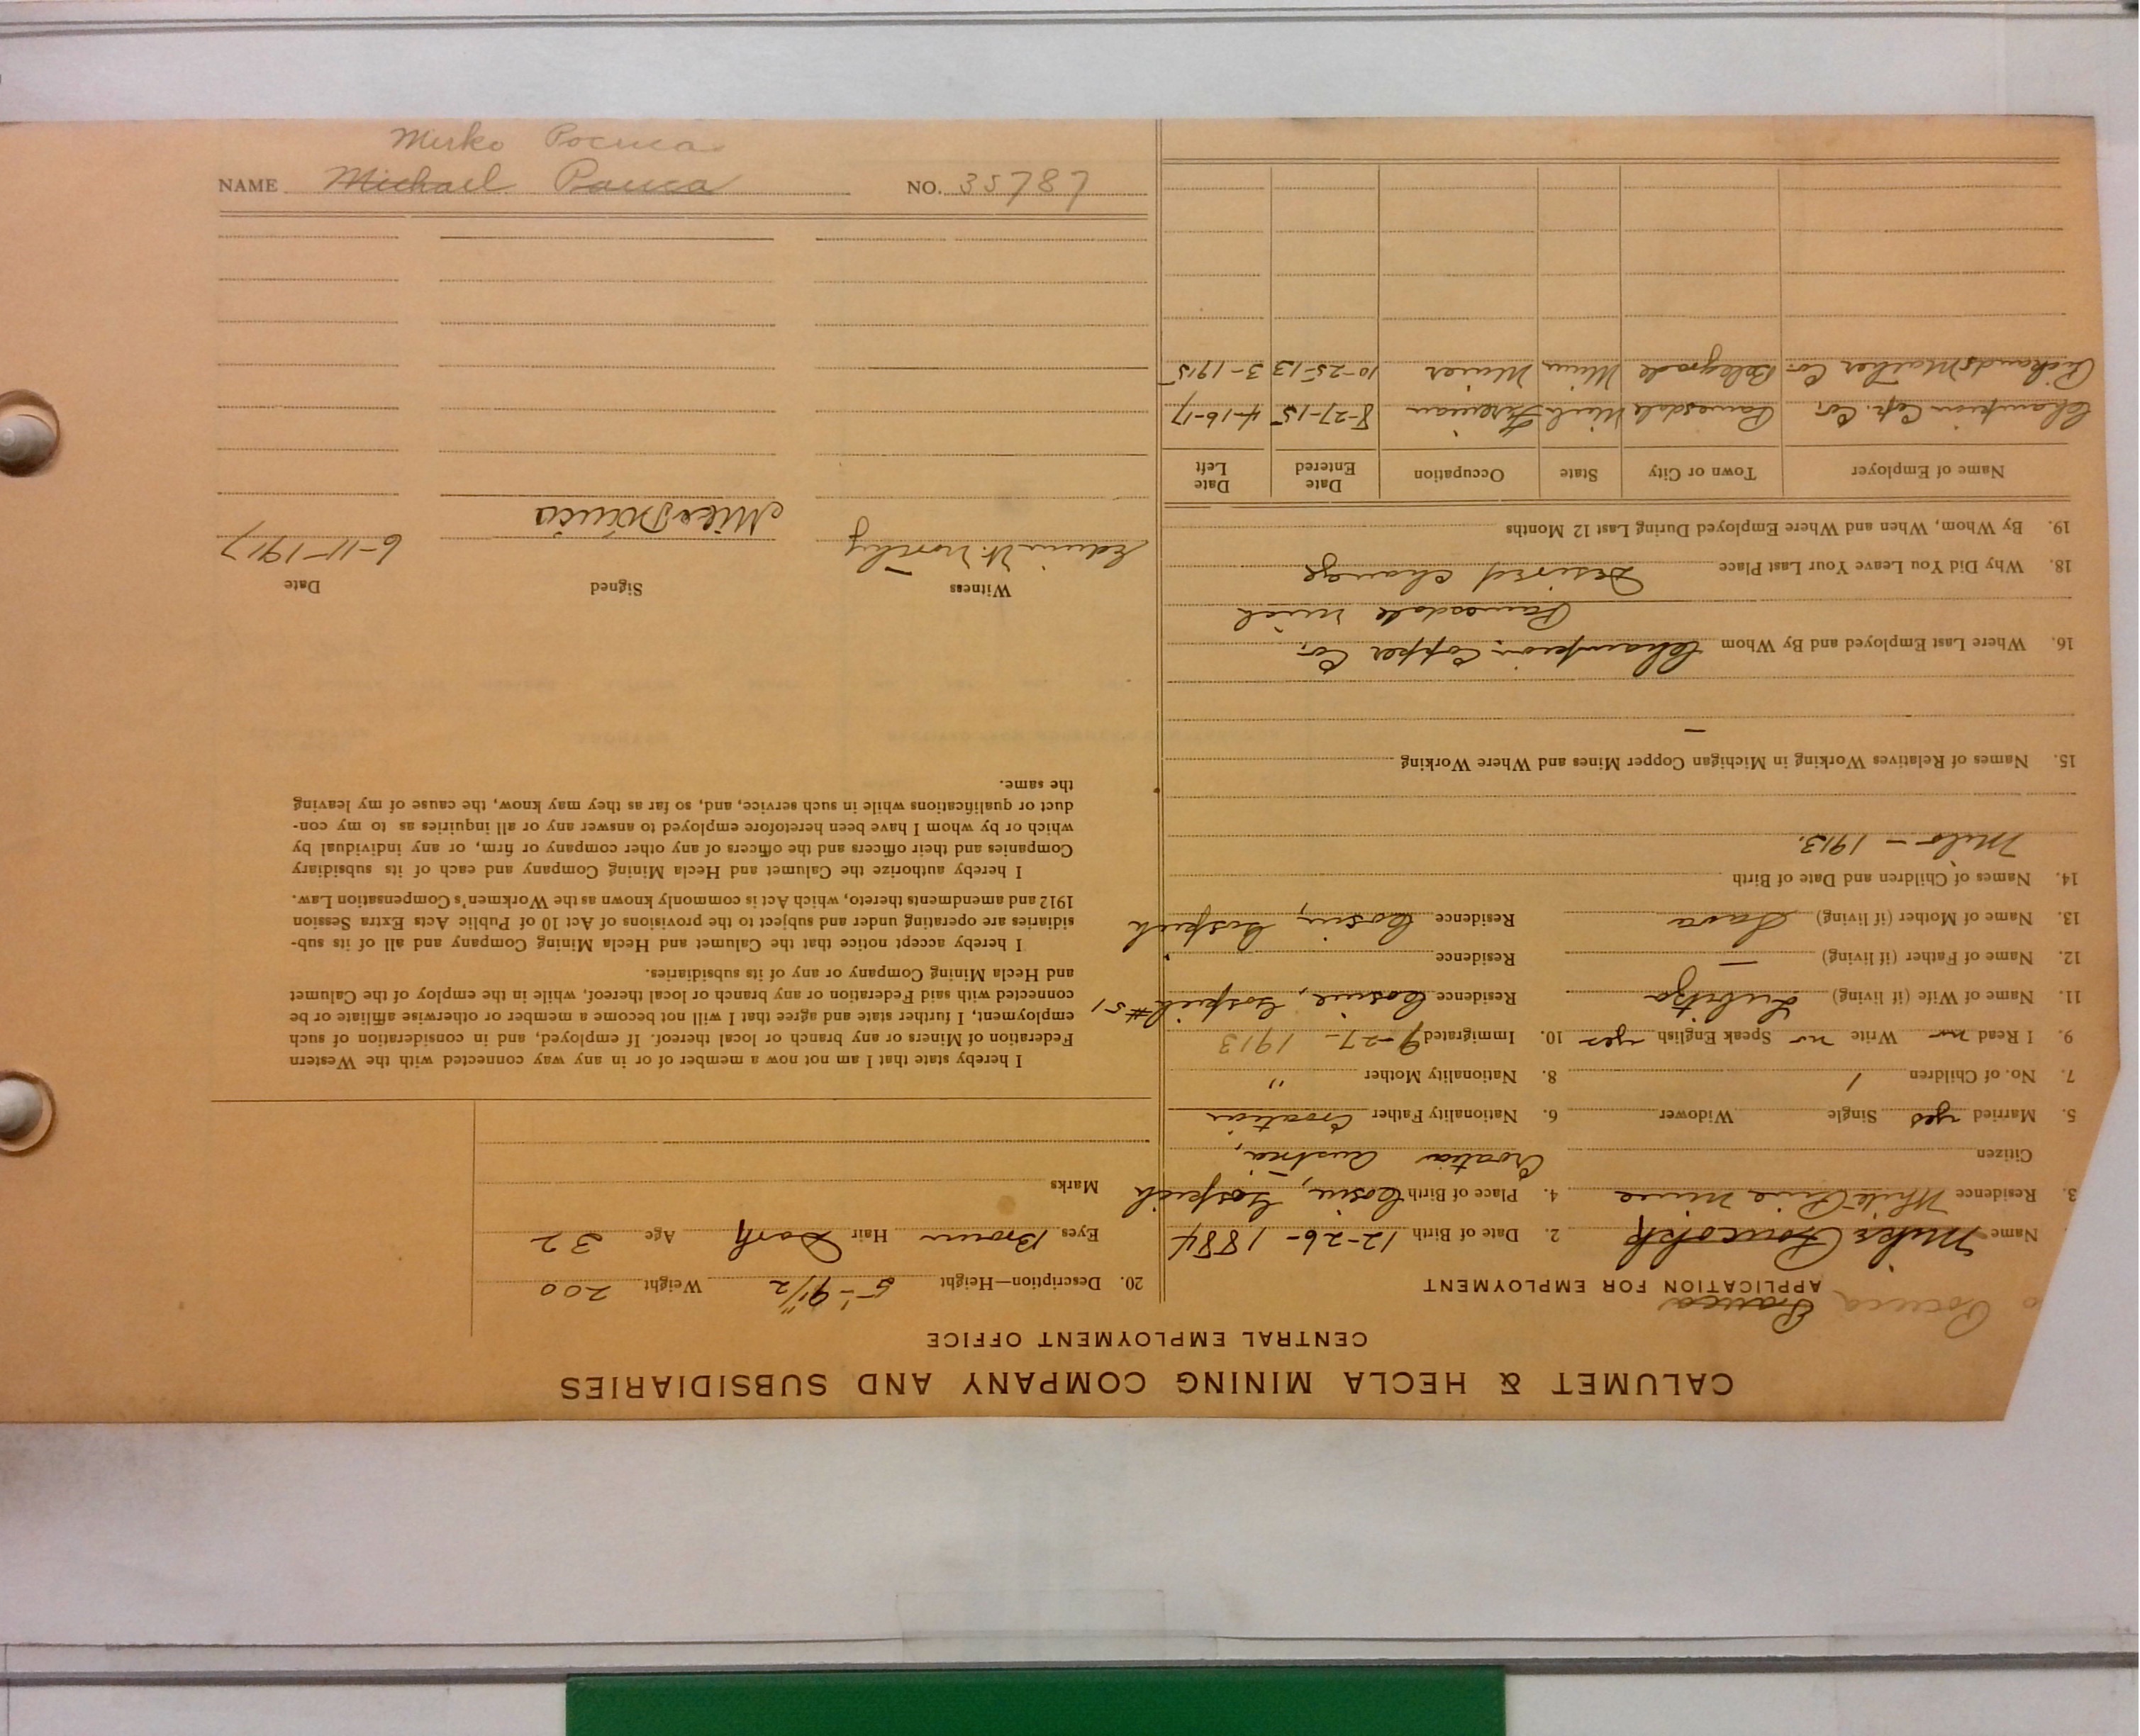 Mirko Pocuca
NAME Michael Pauca NO. 35787
CALUMET & HECLA MINING COMPANY AND SUBSIDIARIES
CENTRAL EMPLOYMENT OFFICE
Pocuca Pauca
APPLICATION FOR EMPLOYMENT
Name Mike 2. Date of Birth 12-26-1884
3. Residence White Pine Mine 4. Place of Birth Gospich
Citizen Croatia Austria
5. Married yes Single Widower 6. Nationality Father Croatian
7. No. of Children 1 8. Nationality Mother "
9. I Read no Write no Speak English yes 10. Immigrated 9-27-1913
11. Name of Wife (if living) Lubitza Residence Gospich #51
12. Name of Father (if living) — Residence
13. Name of Mother (if living) Sava Residence Gospich
14. Names of Children and Date of Birth
Milo - 1913.
15. Names of Relatives Working in Michigan Copper Mines and Where Working
—
16. Where Last Employed and By Whom Champion Copper Co.
Painesdale Mich
18. Why Did You Leave Your Last Place Desired change
19. By Whom, When and Where Employed During Last 12 Months
Name of Employer Town or City State Occupation Date Entered Date Left
Champion Cop. Co. Painesdale Mich Fireman 8-27-15 4-16-17
Pickands Mather Co. Belegrade Minn Miner 10-25-13 3-1915
20. Description—Height 5'-9 1/2" Weight 200
Eyes Brown Hair Dark Age 32
Marks
I hereby state that I am not now a member of or in any way connected with the Western
Federation of Miners or any branch or local thereof. If employed, and in consideration of such
employment, I further state and agree that I will not become a member or otherwise affiliate or be
connected with said Federation or any branch or local thereof, while in the employ of the Calumet
and Hecla Mining Company or any of its subsidiaries.
I hereby accept notice that the Calumet and Hecla Mining Company and all of its sub-
sidiaries are operating under and subject to the provisions of Act 10 of Public Acts Extra Session
1912 and amendments thereto, which Act is commonly known as the Workmen's Compensation Law.
I hereby authorize the Calumet and Hecla Mining Company and each of its subsidiary
Companies and their officers and the officers of any other company or firm, or any individual by
which or by whom I have been heretofore employed to answer any or all inquiries as to my con-
duct or qualifications while in such service, and, so far as they may know, the cause of my leaving
the same.
Witness Signed Date
Edwin W. 6-11-1917